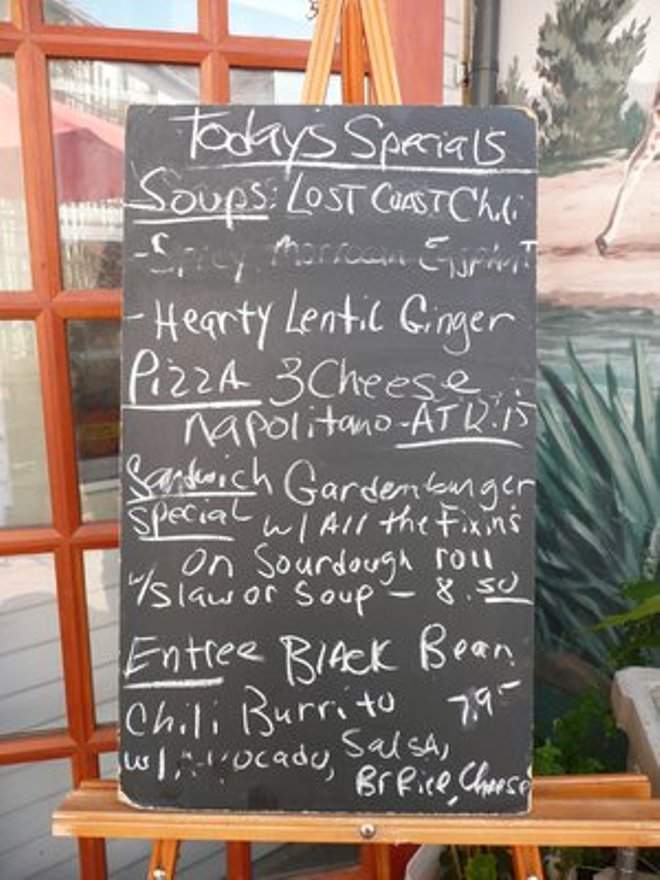 Today's Specials
Soups: LOST COAST Chili
- Spicy Morrocan Eggplant
- Hearty Lentil Ginger
Pizza 3 Cheese
napolitano - AT 12:15
Sandwich Gardenburger
Special w/ All the Fixin's
on Sourdough roll
w/ Slaw or Soup - 8.50
Entree Black Bean
Chili Burrito 7.95
w/ Avocado, Salsa,
Br Rice, Cheese